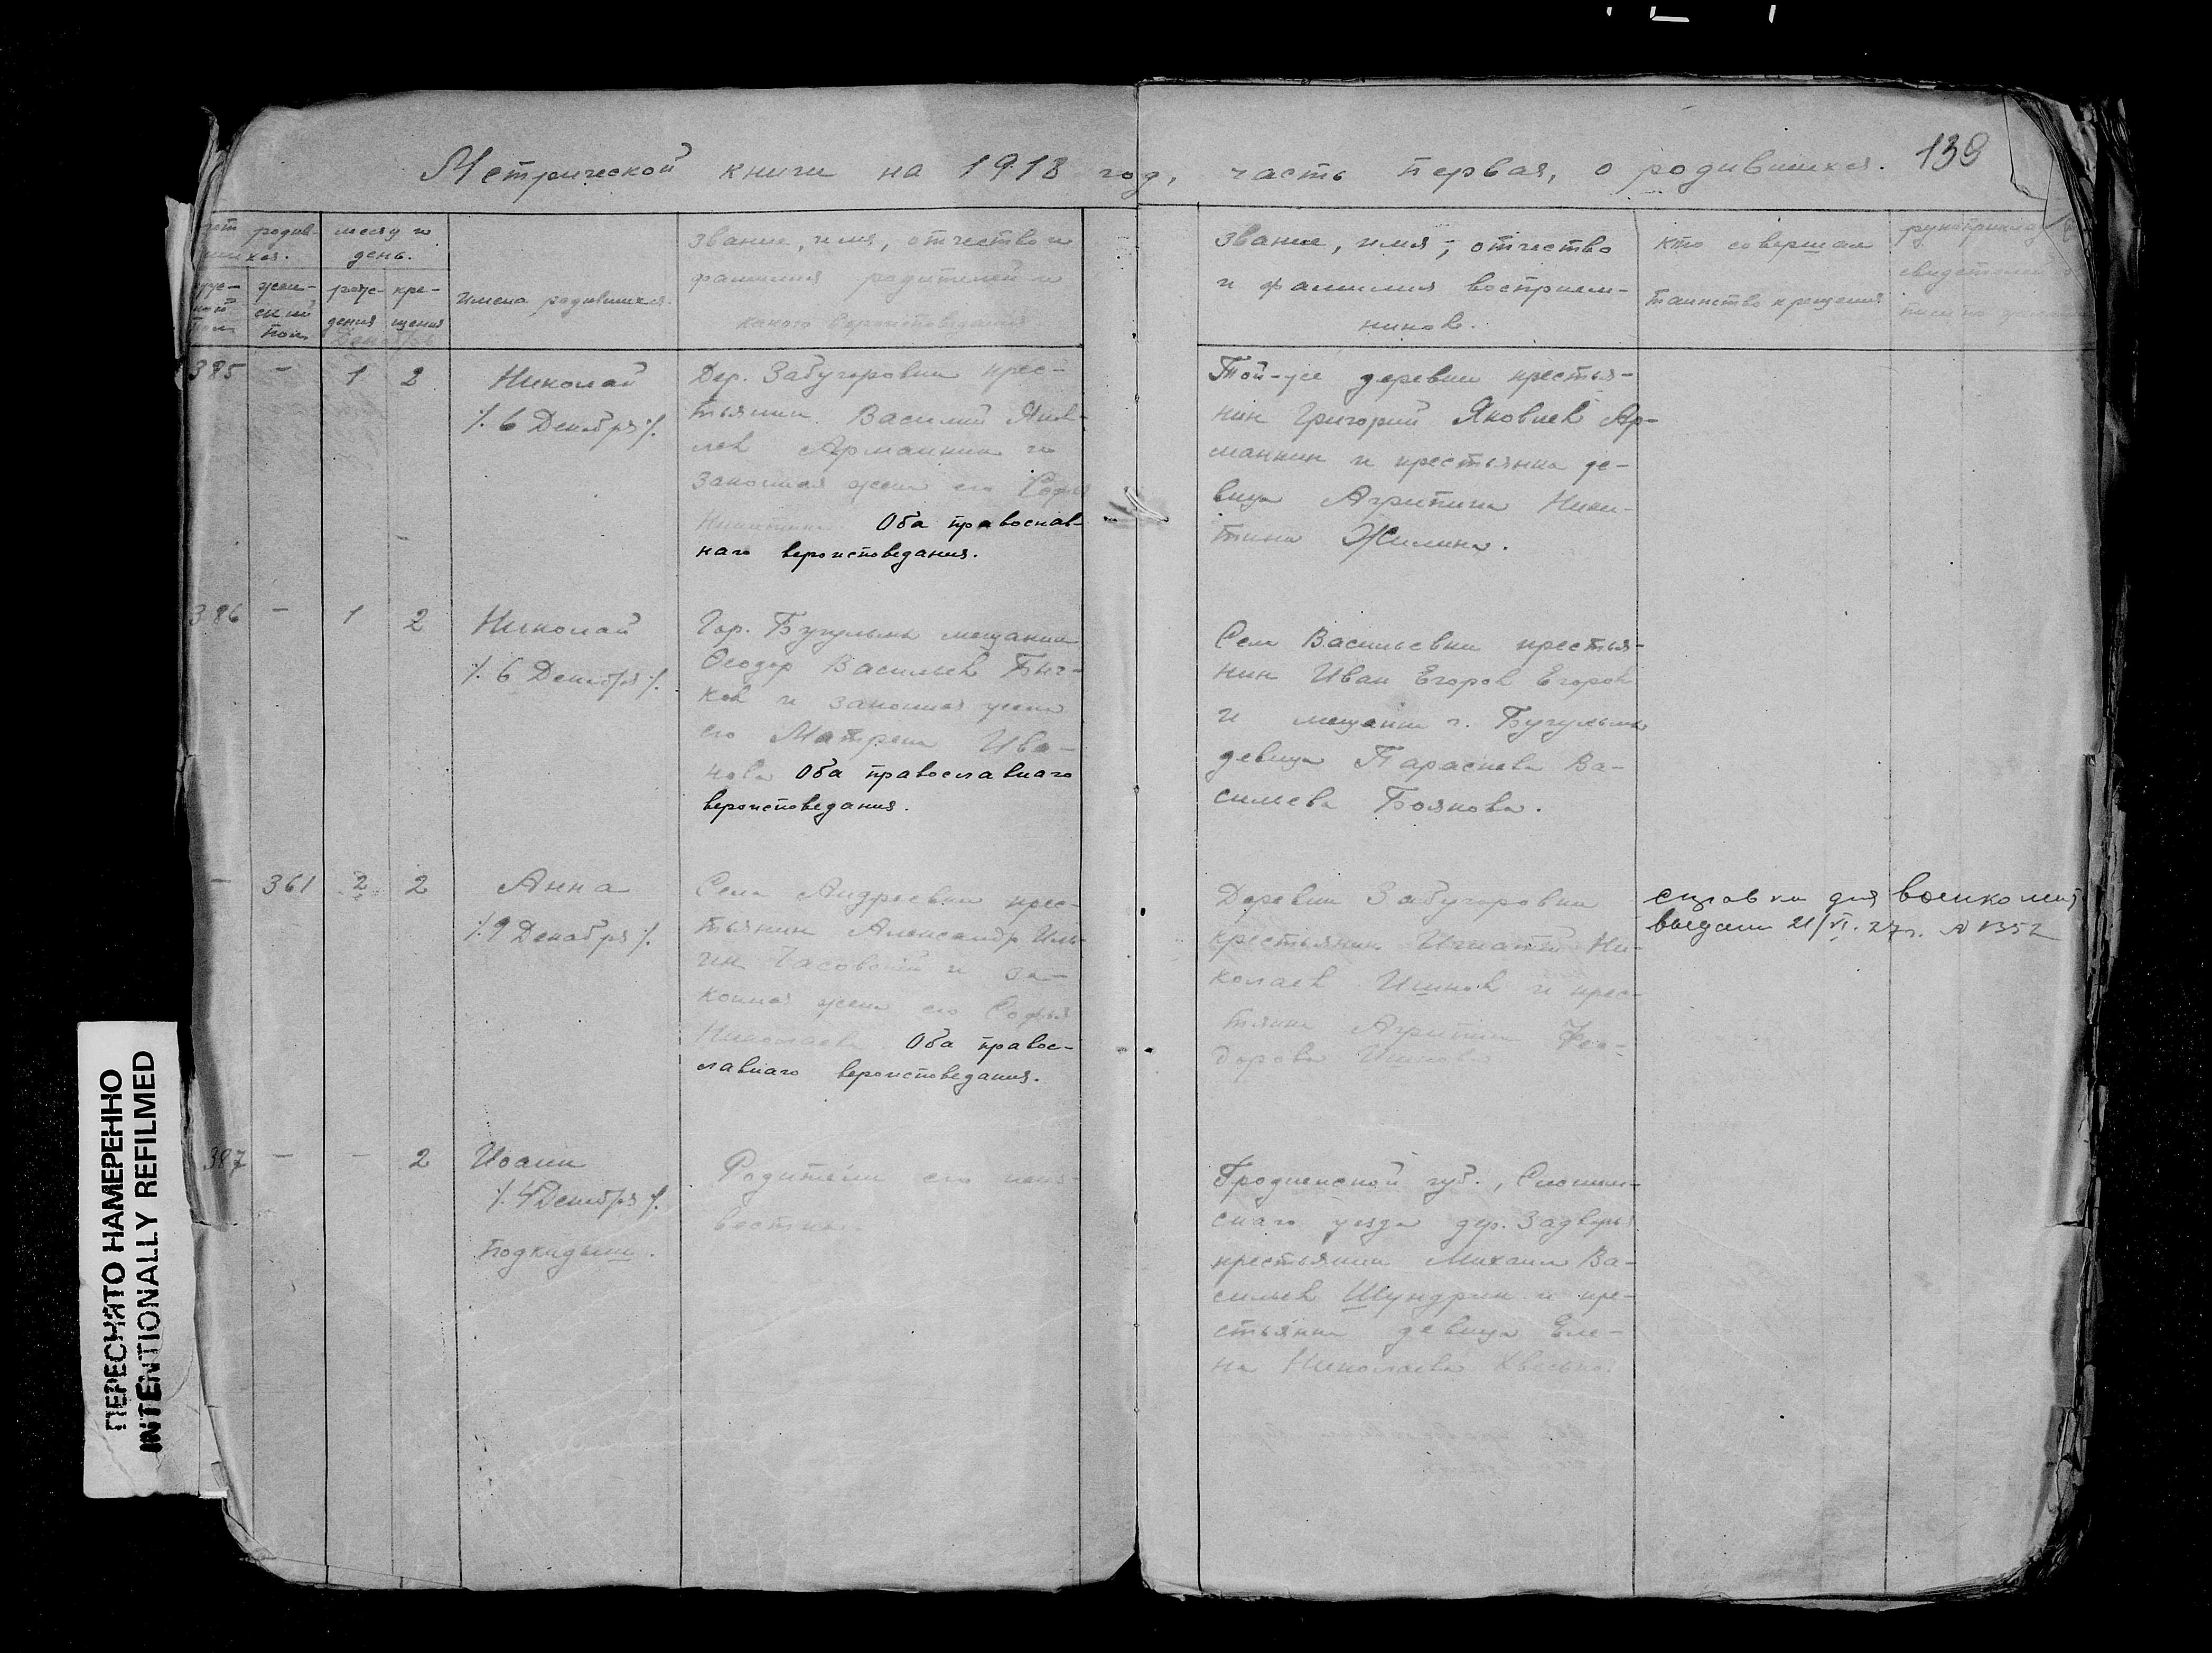 139
Метрической книги на 1918 год, часть первая, о родившихся.
родив- месяц и
шихся. день.
жен- рож- кре-
ский дения щения
пол Декабрь
Имена родившихся.
Звание, имя, отчество и
фамилия родителей и
какого вероисповедания
Звание, имя, отчество
и фамилия восприем-
ников.
кто совершал
таинство крещения
385 - 1 2
Николай
/. 6 Декабря /.
Дер. Забугоровки крес-
тьянин Василий Яков-
лев Арманкин и
законная жена его Софья
Никитина. Оба православ-
наго вероисповедания.
Той-же деревни крестья-
нин Григорий Яковлев Ар-
манкин и крестьянка де-
вица Агрипина Ники-
тина Жилина.
386 - 1 2
Николай
/. 6 Декабря /.
Гор. Бугульмы мещанин
Феодор Васильев Быч-
ков и законная жена
его Матрена Ива-
нова Оба православнаго
вероисповедания.
Села Васильевки крестья-
нин Иван Егоров Егоров
и мещанка г. Бугульмы
девица Параскева Ва-
сильева Боякова.
- 361 2 2
Анна
/. 9 Декабря /.
Села Андреевки крес-
тьянин Александр Иль-
ин Часовской и за-
конная жена его Софья
Николаева. Оба правос-
лавнаго вероисповедания.
Деревни Забугоровки
крестьянин Игнатий Ни-
колаев и крес-
тьянка Агрипина Фео-
дорова
справка для военкомат
выдана 21/VI. 27г. № 1352
387 - - 2
Иоанн
/. 4 Декабря /.
Подкидыш.
Родители его неиз-
вестны.
Гродненской губ., Слоним-
скаго уезда дер. Задворья
крестьянин Михаил Ва-
сильев Шундрик и кре-
стьянка девица Еле-
на Николаева
ПЕРЕСНЯТО НАМЕРЕННО
INTENTIONALLY REFILMED